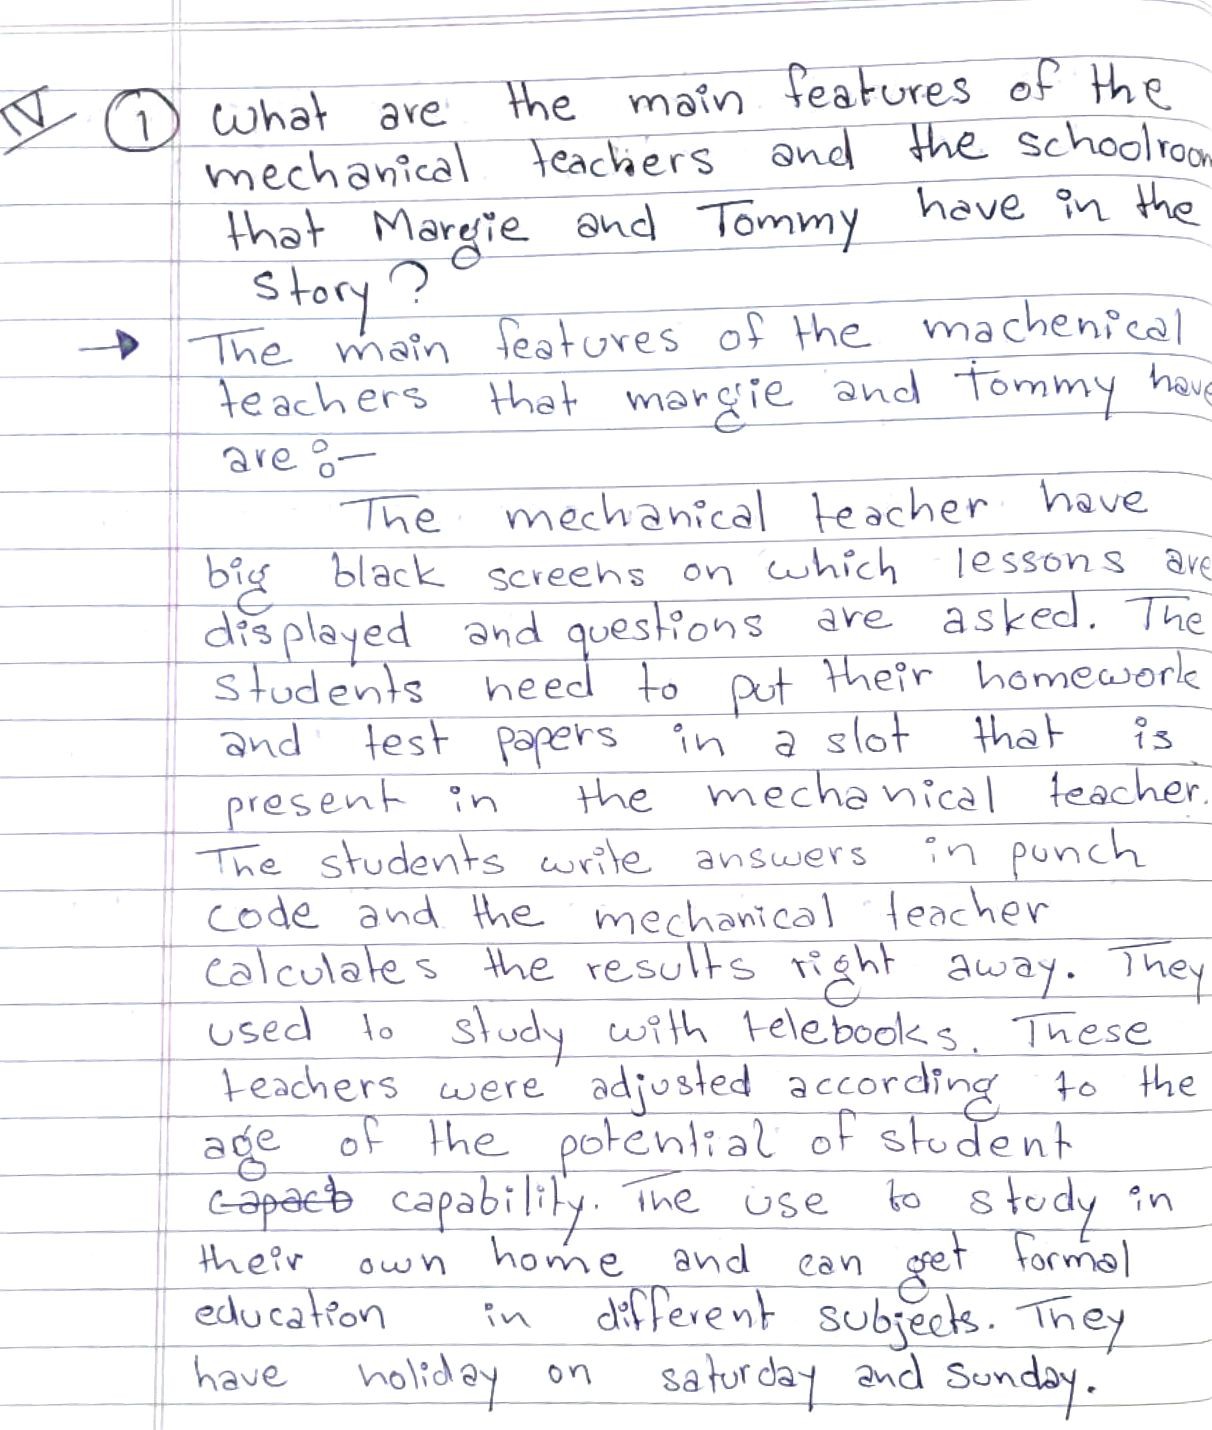 IV 1 What are the main features of the
mechanical teachers and the schoolroom
that Margie and Tommy have in the
story?
→ The main features of the machenical
teachers that margie and Tommy have
are :-
The mechanical teacher have
big black screens on which lessons are
displayed and questions are asked. The
students need to put their homework
and test papers in a slot that is
present in the mechanical teacher.
The students write answers in punch
code and the mechanical teacher
calculates the results right away. They
used to study with telebooks. These
teachers were adjusted according to the
age of the potential of student
capacb capability. The use to study in
their own home and can get formal
education in different subjects. They
have holiday on saturday and Sunday.